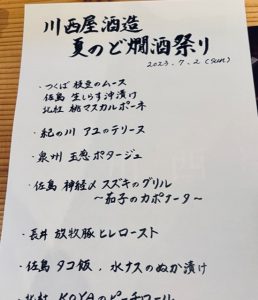 川西屋酒造
夏のど燗酒祭り
2023.7.2(sun)
・つくば 枝豆のムース
佐島 生しらす沖漬け
北杜 桃マスカルポーネ
・紀の川 アユのテリーヌ
・泉州 玉葱ポタージュ
・佐島 神経〆スズキのグリル
～茄子のカポナータ～
・長井 放牧豚ヒレロースト
・佐島 タコ飯、水ナスのぬか漬け
のピーチコール